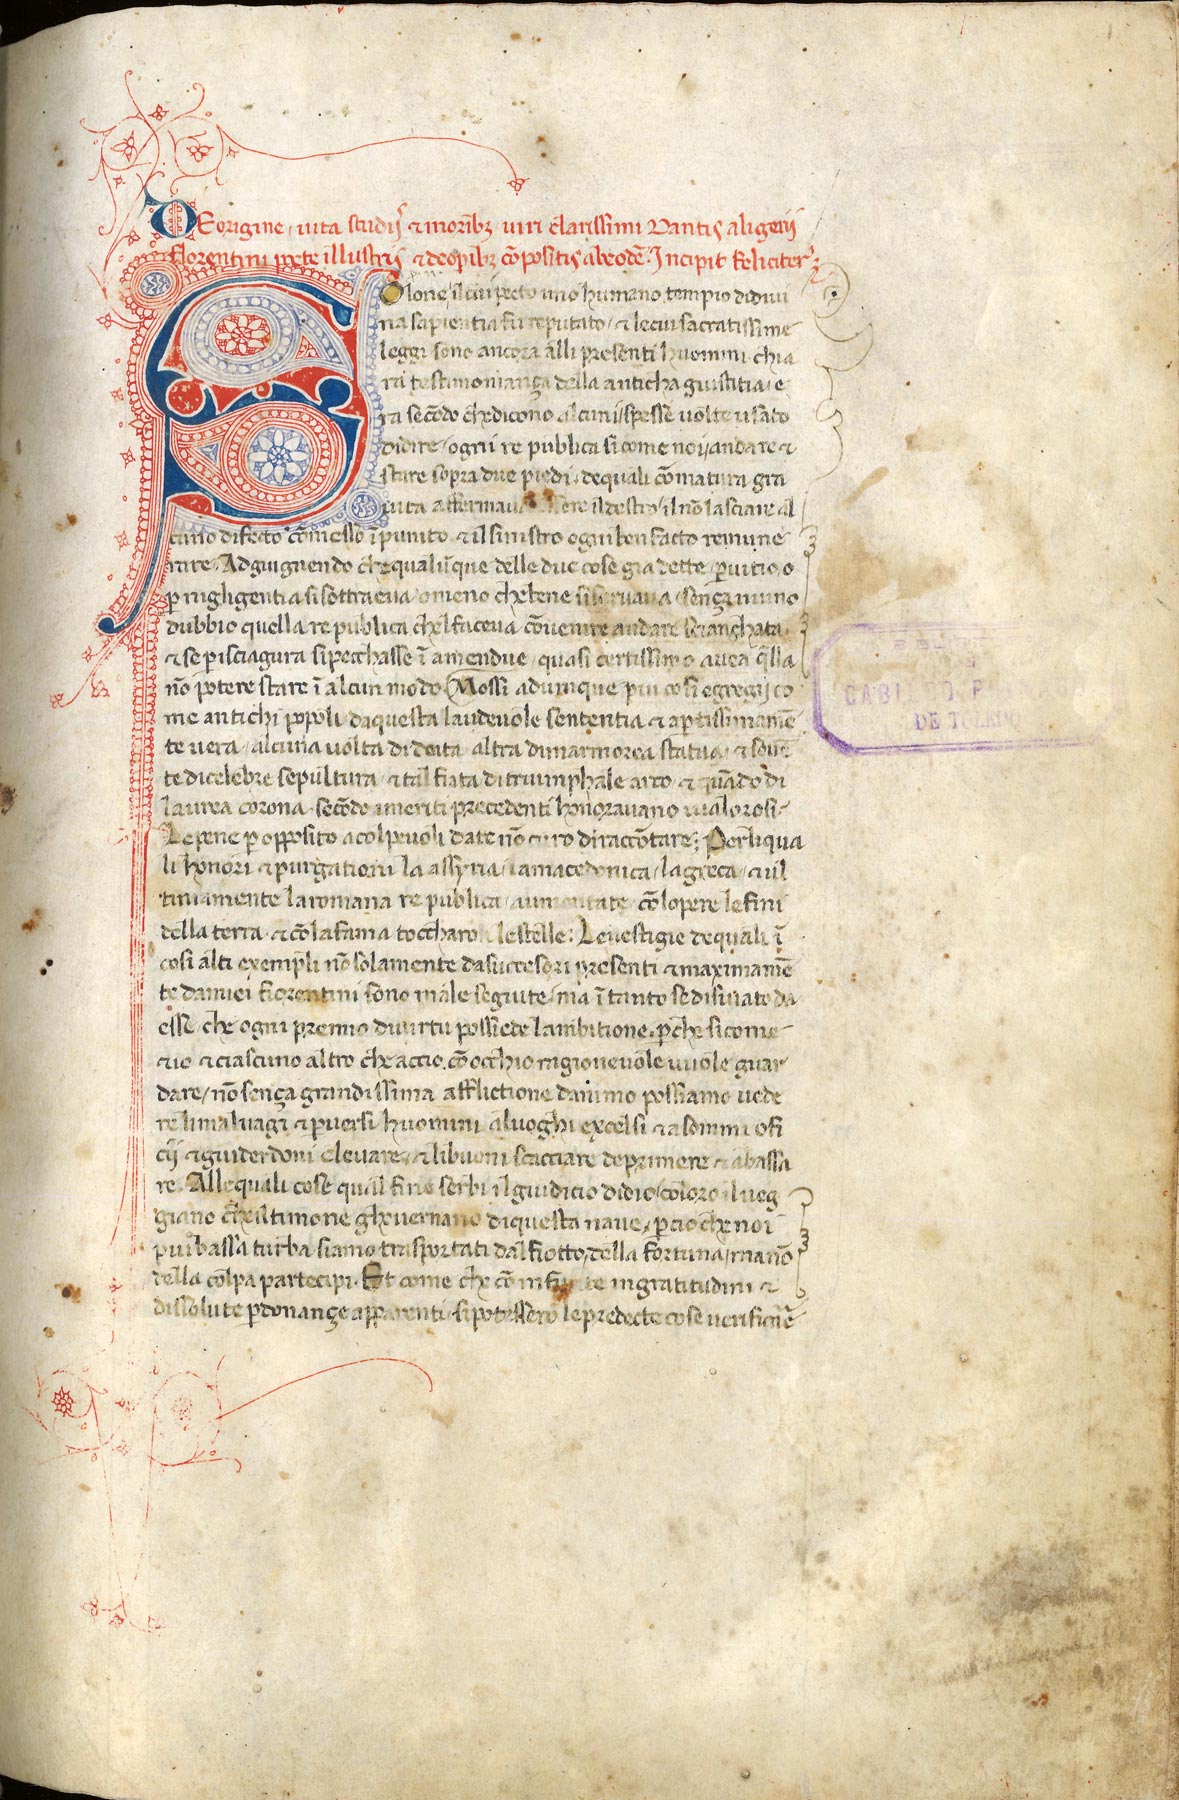 DE origine, uita studijs & morib; uiri clarissimi Dantis aligerij
florentini poete illustris & de opib; cōpositis ab eodē. Incipit feliciter:
Solone il cui pecto uno humano tempio didiui
na sapientia fu reputato, & lecui sacratissime
leggi sono ancora alli presenti huomini chia
ra testimoniança della anticha giustitia, e
ra secōdo che dicono alcuni spesse uolte usato
didire, ogni re publica sicome noi, andare &
stare sopra due piedi, dequali cō matura gra
uita affermaua essere ildestro, il nō lasciare al
cuno difecto cōmesso īpunito & il sinistro ogni ben facto remune
rare. Adgiugnendo che qualūque delle due cose gia dette, p uitio, o
p nigligentia si sottraeua, o meno che bene si seruaua, sença niuno
dubbio quella re publica chel faceua cōuenire andare sciancħata,
& se p isciagura si pecchasse ī amendue, quasi certissimo auea q̄lla
nō potere stare ī alcun modo. Mossi adumque piu cosi egregij co
me antichi popoli daquesta laudeuole sententia & aptissimamē
te uera, alcuna uolta dideita, altra dimarmorea statua, & souē
te dicelebre sepultura, & tal fiata ditriumphale arco, & quādo di
laurea corona, secōdo imeriti precedenti honorauano iualorosi.
Le pene p opposito acolpeuoli date nō curo diraccōtare. Per liqua
li honori & purgationi la assyria, lamacedonica, lagreca, & ul
timamente laromana re publica, aumentate, cō lopere le fini
della terra, & cō lafama toccharono lestelle. Leuestigie dequali ī
cosi alti exempli nō solamente dasuccesori presenti & maximamē
te damiei fiorentini sono male seguite, ma ī tanto se disuiato da
esse che ogni premio di uirtu possiede lambitione, pche sicome
& io & ciascuno altro che accio cō occhio ragioneuole uuole guar
dare, nō sença grandissima afflictione danimo possiamo uede
re li maluagi & puersi huomini aluoghi excelsi & a sommi ofi
cij & guiderdoni eleuare, & li buoni scacciare deprimere & abassa
re. Alle quali cose qual fine serbi il giudicio didio, coloro il ueg
giano che iltimone ghouernano diquesta naue, pcio che noi
piu bassa turba siamo trasportati dal fiotto della fortuna, ma nō
della colpa partecipi. Et come che cō infinite ingratitudini &
dissolute pdonançe apparenti, si potessero le predecte cose uerificare
CABILDO PRIMADO
DE TOLEDO